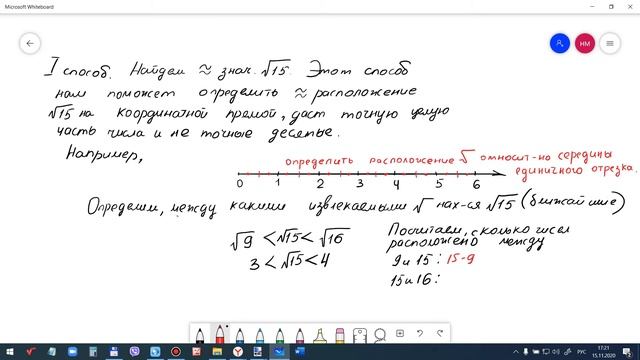 Microsoft Whiteboard
НМ
I способ. Найдем ≈ знач. √15. Этот способ
нам поможет определить ≈ расположение
√15 на координатной прямой, даст точную целую
часть числа и не точные десятые.
Например,
определить расположение √ относит-но середины
единичного отрезка.
0 1 2 3 4 5 6
Определим, между какими извлекаемыми √ нах-ся √15 (ближайшие)
√9 < √15 < √16
3 < √15 < 4
Посчитаем, сколько чисел
расположено между
9 и 15 : 15-9
15 и 16 :
РУС
17:21
15.11.2020